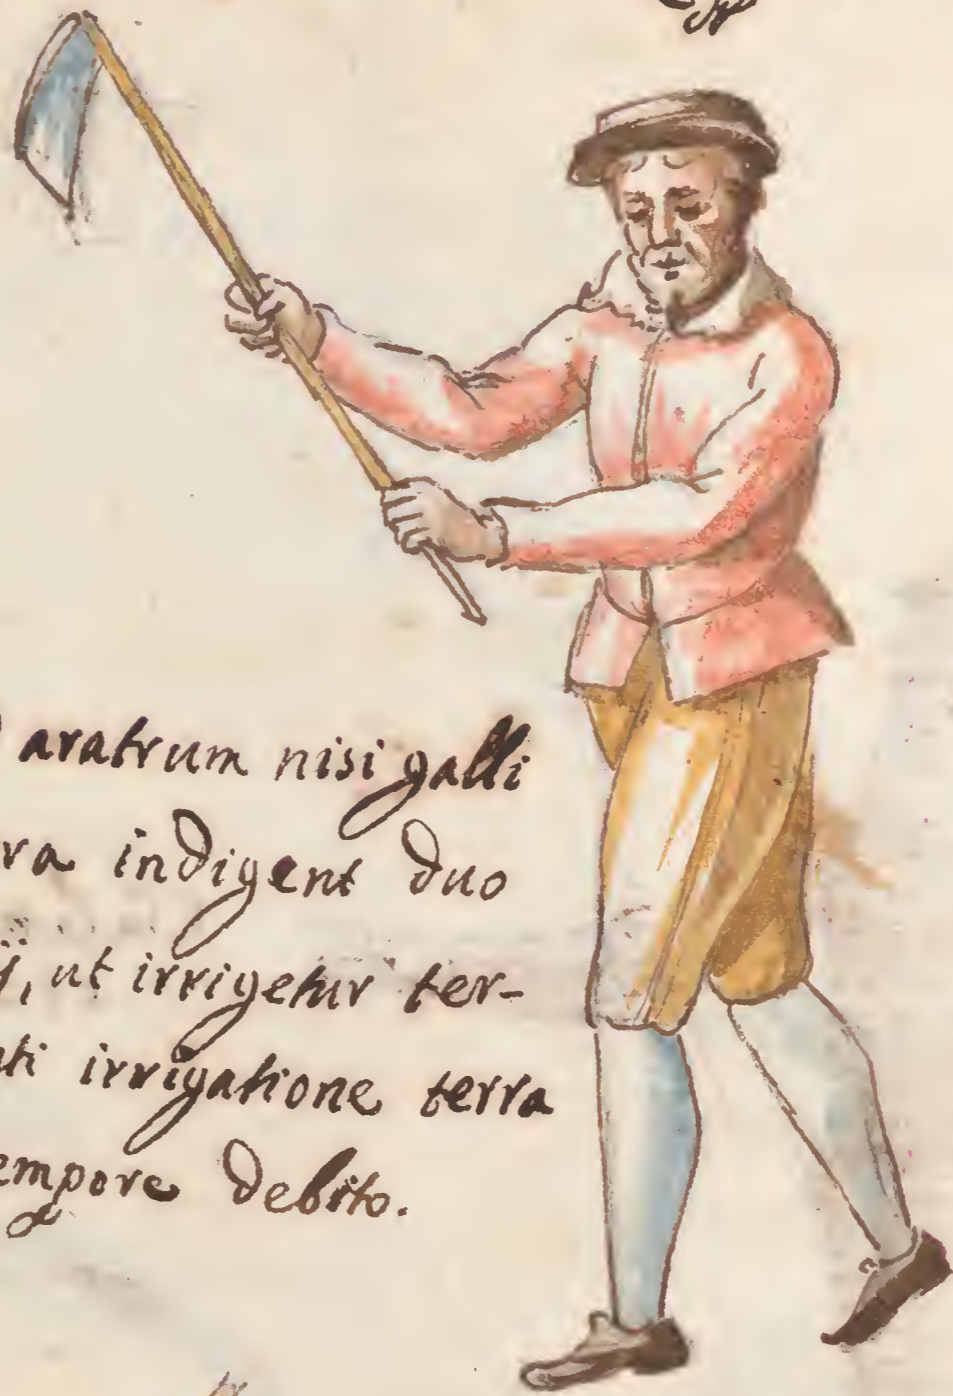 aratrum nisi galli
ra indigent duo
ÿ, ut irrigetur ter-
ti irrigatione terra
empore debito.